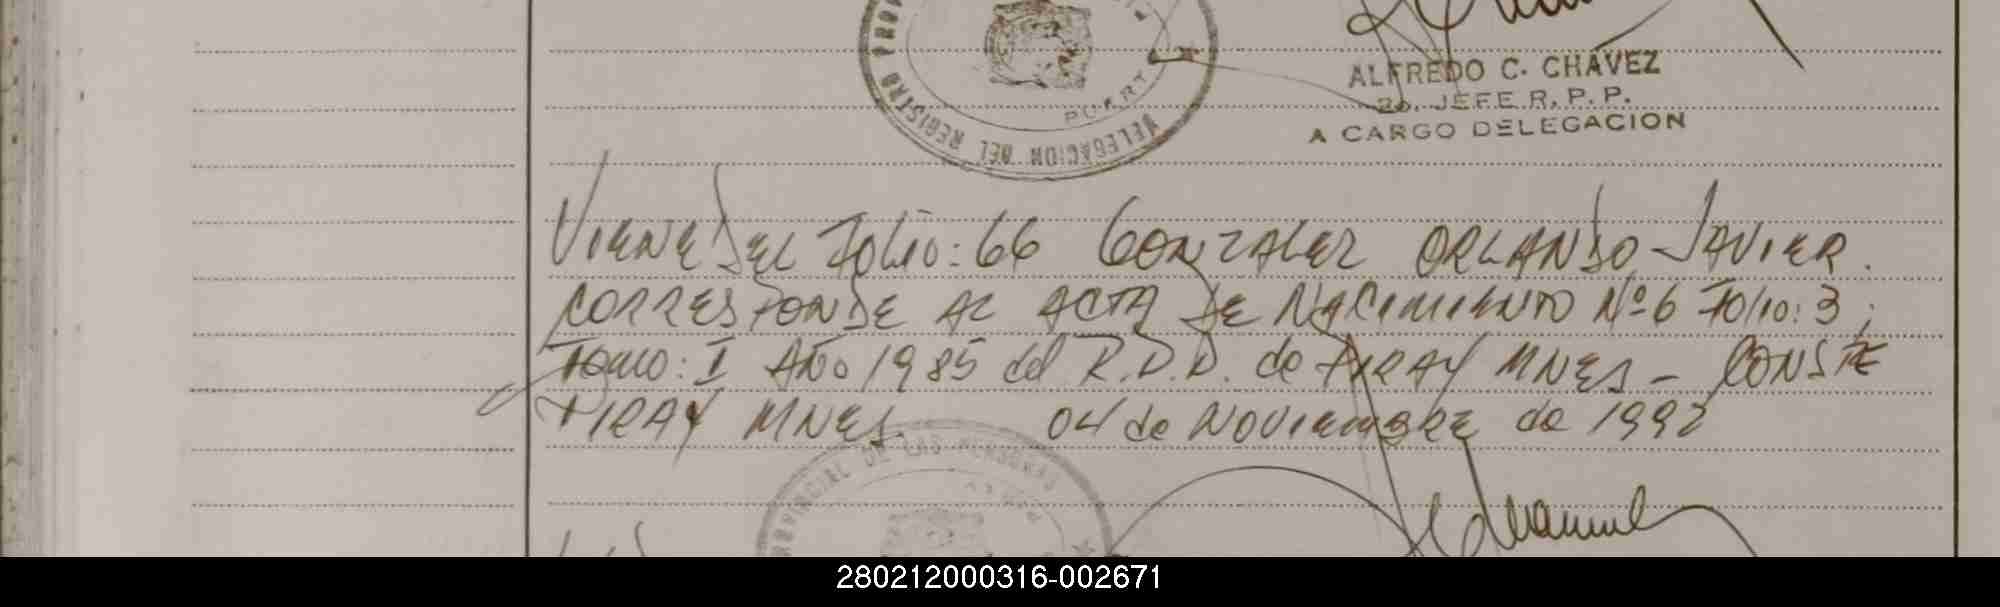 ALFREDO C. CHAVEZ
2o. JEFE R. P. P.
A CARGO DELEGACION
DELEGACION DEL REGISTRO
PUERT
VIENE DEL FOLIO: 66 GONZALEZ ORLANDO JAVIER.
CORRESPONDE AL ACTA DE NACIMIENTO Nº 6 FOLIO: 3;
TOMO: I AÑO 1985 del R.P.P. de PIRAY MNES - CONSTE
PIRAY MNES. 04 de NOVIEMBRE de 1992
PROVINCIAL DE LAS PERSONAS
280212000316-002671